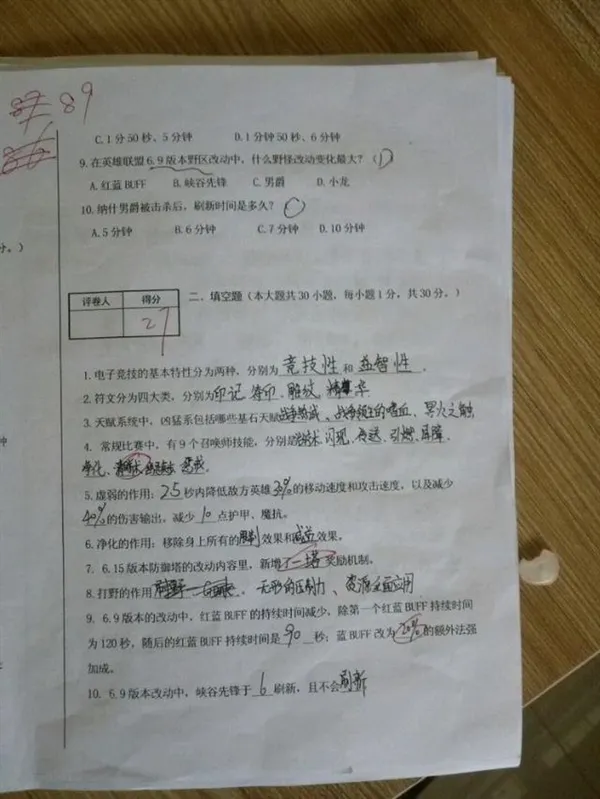 87 89
86
C. 1 分 50 秒、5 分钟 D. 1 分钟 50 秒、6 分钟
9. 在英雄联盟 6.9 版本野区改动中，什么野怪改动变化最大？（D）
A. 红蓝 BUFF B. 峡谷先锋 C. 男爵 D. 小龙
10. 纳什男爵被击杀后，刷新时间是多久？（）
A. 5 分钟 B. 6 分钟 C. 7 分钟 D. 10 分钟
分。）
评卷人 得分
27
二、填空题（本大题共 30 小题，每小题 1 分，共 30 分。）
1. 电子竞技的基本特性分为两种，分别为 竞技性 和 益智性 .
2. 符文分为四大类，分别为印记、雕纹、精华
3. 天赋系统中，凶猛系包括哪些基石天赋战争热诚、战争领主的嗜血、死火之触
4. 常规比赛中，有 9 个召唤师技能，分别是治疗术、闪现、传送、引燃、屏障、
净化、惩戒
5. 虚弱的作用：2.5 秒内降低敌方英雄30%的移动速度和攻击速度，以及减少
40%的伤害输出，减少 10 点护甲、魔抗。
6. 净化的作用：移除身上所有的效果和减益效果。
7. 6.15 版本防御塔的改动内容里，新增 一塔 奖励机制。
8. 打野的作用 无形的压制力、资源全面应用
9. 6.9 版本的改动中，红蓝 BUFF 的持续时间减少，除第一个红蓝 BUFF 持续时间
为 120 秒，随后的红蓝 BUFF 持续时间是 90 秒；蓝 BUFF 改为 20% 的额外法强
加成。
10. 6.9 版本改动中，峡谷先锋于 6 刷新，且不会刷新
钟